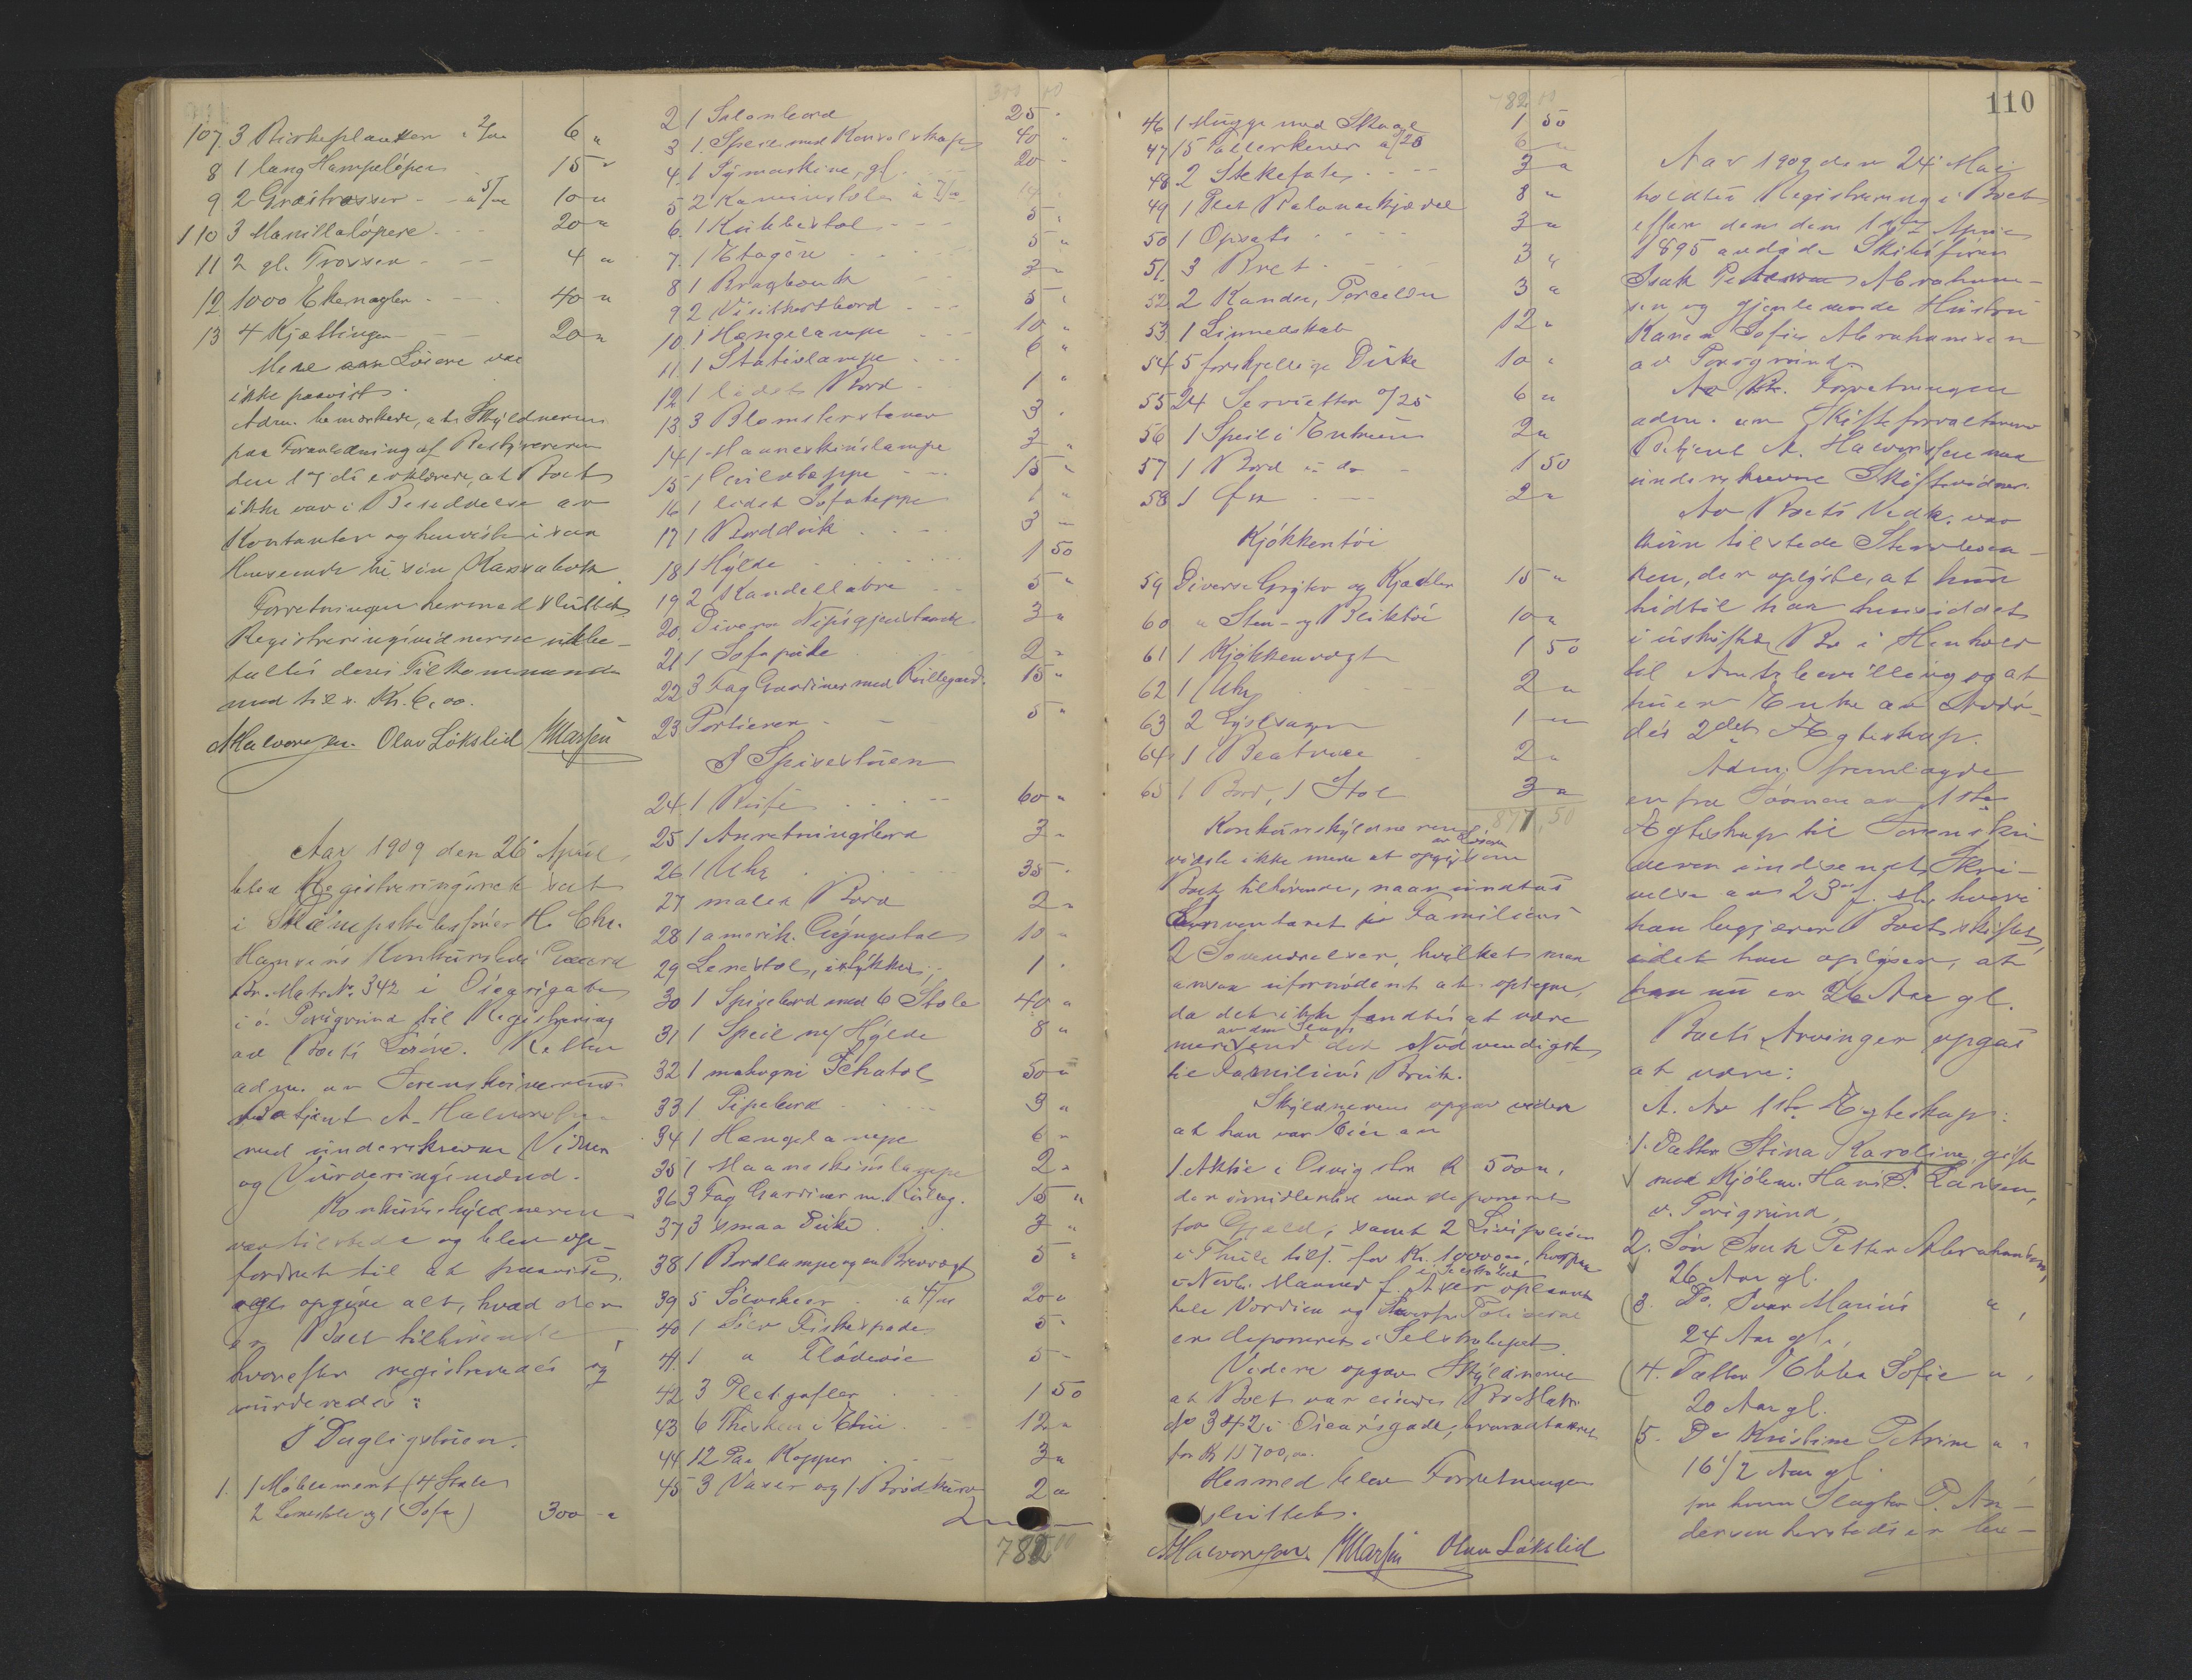 107 3 Birkeplanker à 2/00 6 "
8 1 lang Hampelöper 15 "
9 2 Grastrosser - à 5/00 10 "
110 3 Manillalöpere - 20 "
11 2 gl. Trosser - 4 "
12 1000 Ekenagler - 40 "
13 4 Kjættinger - 20 "
Mere Løsøre var
ikke paavist.
Adm. bemærkede, at Skyldneren
paa Foranledning af Bestyreren
den 17 ds erklærede, at Boet
ikke var i Besiddelse av
Kontanter og henviste i saa
Henseende til sin Kassabok
Forretningen hermed sluttet.
Registreringsvidnerne udbe-
taltes deres Tilkommende
med tils. Kr. 6,00.
AHalvorsen. Olav Lökslid
Aar 1909 den 26' April
blev Registreringsret sat
i Skibsfører H. Chr.
Hansens Konkursbo i Gaard
Br. Matr. No. 342 i Oscarsgate
i ö. Porsgrund til Registrering
av Boets Løsøre. Retten
adm. av Sorenskriverens
Betjent A. Halvorsen
med underskrevne Vidner
og Vurderingsmænd.
Konkursskyldneren
var tilstede og blev op-
fordret til at paavise
og opgive alt, hvad der
er Boet tilhörende,
hvorefter registreredes og
vurderedes:
I Dagligstuen.
1. 1 Möblement (4 Stole
2 Lenestole og 1 Sofa) 300 "
300 00
2 1 Salonbord 25 "
3 1 Speil med Konsolskap 40 "
4 1 Symaskine, gl. 20 -
5 2 Kaminstole à 7/00 14 "
6 1 Kubbestol 5 "
7 1 Etagère 5 "
8 1 Kragbænk 3 "
9 2 Visitkortbord 5 "
10 1 Hængelampe 10 "
11 1 Stativlampe 6 "
12 1 lidet Bord 1 "
13 3 Blomsterstaver 3 "
14 1 Maaneskinslampe 3 "
15 1 Gulvteppe 15 "
16 1 lidet Sofateppe 1 "
17 1 Borddúk 3 "
18 1 Hylde 1 50
19 2 Kandellabre 5 "
20 Diverse Nipsgjenstande 3 "
21 1 Sofapute 2 "
22 3 Fag Gardiner med Rullegard. 15 "
23 Portierer 5 "
I Spisestuen
24 1 Büfé 60 "
25 1 Anretningsbord 3 "
26 1 Uhr 35 -
27 malet Bord 2 "
28 1 amerik. Gyngestol 10 "
29 Lenestol, istykker; 1 "
30 1 Spisebord med 6 Stole 40 "
31 1 Speil m/ Hylde 8 "
32 1 mahogni Schatol 50 "
33 1 Pipebord 3 "
34 1 Hængelampe 6 "
35 1 Maaneskinslampe 2 "
36 3 Fag Gardiner m. Rulleg. 15 "
37 3 smaa Duke 3 "
38 1 Bordlampe og en Brevvægt 5 "
39 5 Sölvskeer à 4/00 20 "
40 1 Sölv Fiskespade 5 "
41 1 " Flödeöse 5 "
42 3 Pletgafler 1 50
43 6 Theskeer i Etui 12 "
44 12 Par Kopper 3 "
45 3 Vaser og 1 Brödkurv 2 "
782 00
782 00
46 1 Mugge med Skaal 1 50
47 15 Tallerkener à /20 6 "
48 2 Stekefate 3 "
49 1 Plet Balancekjedel 8 "
50 1 Opsats 3 "
51 3 Bret 3 "
52 2 Kander, Porcellæn 3 "
53 1 Linnedskab 12 "
54 5 forskjellige Duke 10 "
55 24 Servietter à /25 6 "
56 1 Speil i Entreen 2 "
57 1 Bord i do - 1 50
58 1 2 "
Kjökkentöi
59 Diverse Gryter og Kjedler 15 "
60 " Sten- og Bliktöi 10 "
61 1 Kjökkenvægt 1 50
62 1 Uhr 2 "
63 2 Lysestager 1 "
64 1 Beatrice 2 "
65 1 Bord, 1 Stol 3 "
877,50
Konkursskyldneren
vidste ikke mere av Løsøre at opgi som
Boet tilhörende, naar undtas
Inventaret i Familiens
2 Soveværelser, hvilket man
ansaa ufornödent at optegne,
da det ikke fandtes at være
mer av den Slags end det Nödvendigste
til Familiens Bruk.
Skyldneren opgav videre
at han var Eier av
1 Aktie i stor Kr 500 00,
der imidlertid var deponeret
for Gjæld, samt 2 Livspoliser
i Thule tils. for Kr. 10000,00, hvorpaa
i Novbr. Maaned f. A. er oplaant
hele Værdien og Poliserne
er deponeret i Selskabet
Videre opgav Skyldneren
at Boet var eiende Br. Matr.
No 342 i Oscarsgade, brandtakseret
for Kr 11700,00.
Hermed blev Forretningen
sluttet.
AHalvorsen. Olav Lökslid
110
Aar 1909 den 24' Mai
holdtes Registrering i Boet
efter den den 1 April
1895 avdöde Skibsförer
Isak Petersen Abraham-
sen og gjenlevende Hustru
Karen Sofie Abrahamsen
av Porsgrund
Forretningen
adm. av Skifteforvalterens
Betjent A. Halvorsen med
underskrevne Skiftevidner.
Av Boets Vedk. var
kun tilstede Stervboen-
ken, der oplyste, at hun
hidtil har hensiddet
i uskiftet Bo i Henhold
til Amtsbevilling og at
hun er Enke av Avdö-
des 2det Ægteskap.
Adm. fremlagde
en fra Sönnen av 1ste
Ægteskap til Sorenskri-
veren indsendt Skri-
velse av 23' f. M., hvori
han begjærer Boet skiftet,
idet han oplyser, at
han nu er 26 Aar gl.
Boets Arvinger opgas
at være:
A. Av 1ste Ægteskap:
1. Datter Stina Karoline, gift
med Kjöbm. Hans P. Larsen,
v. Porsgrund,
2. Sön Isak Petter Abrahamsen,
26 Aar gl.
3. Do. Ivar Marius " ,
24 Aar gl.,
4. Datter Ebba Sofie " ,
20 Aar gl.
5. Do Kristine Petrine " "
16 1/2 Aar gl.
for hvem Slagter P. An-
dersen herstads er be-